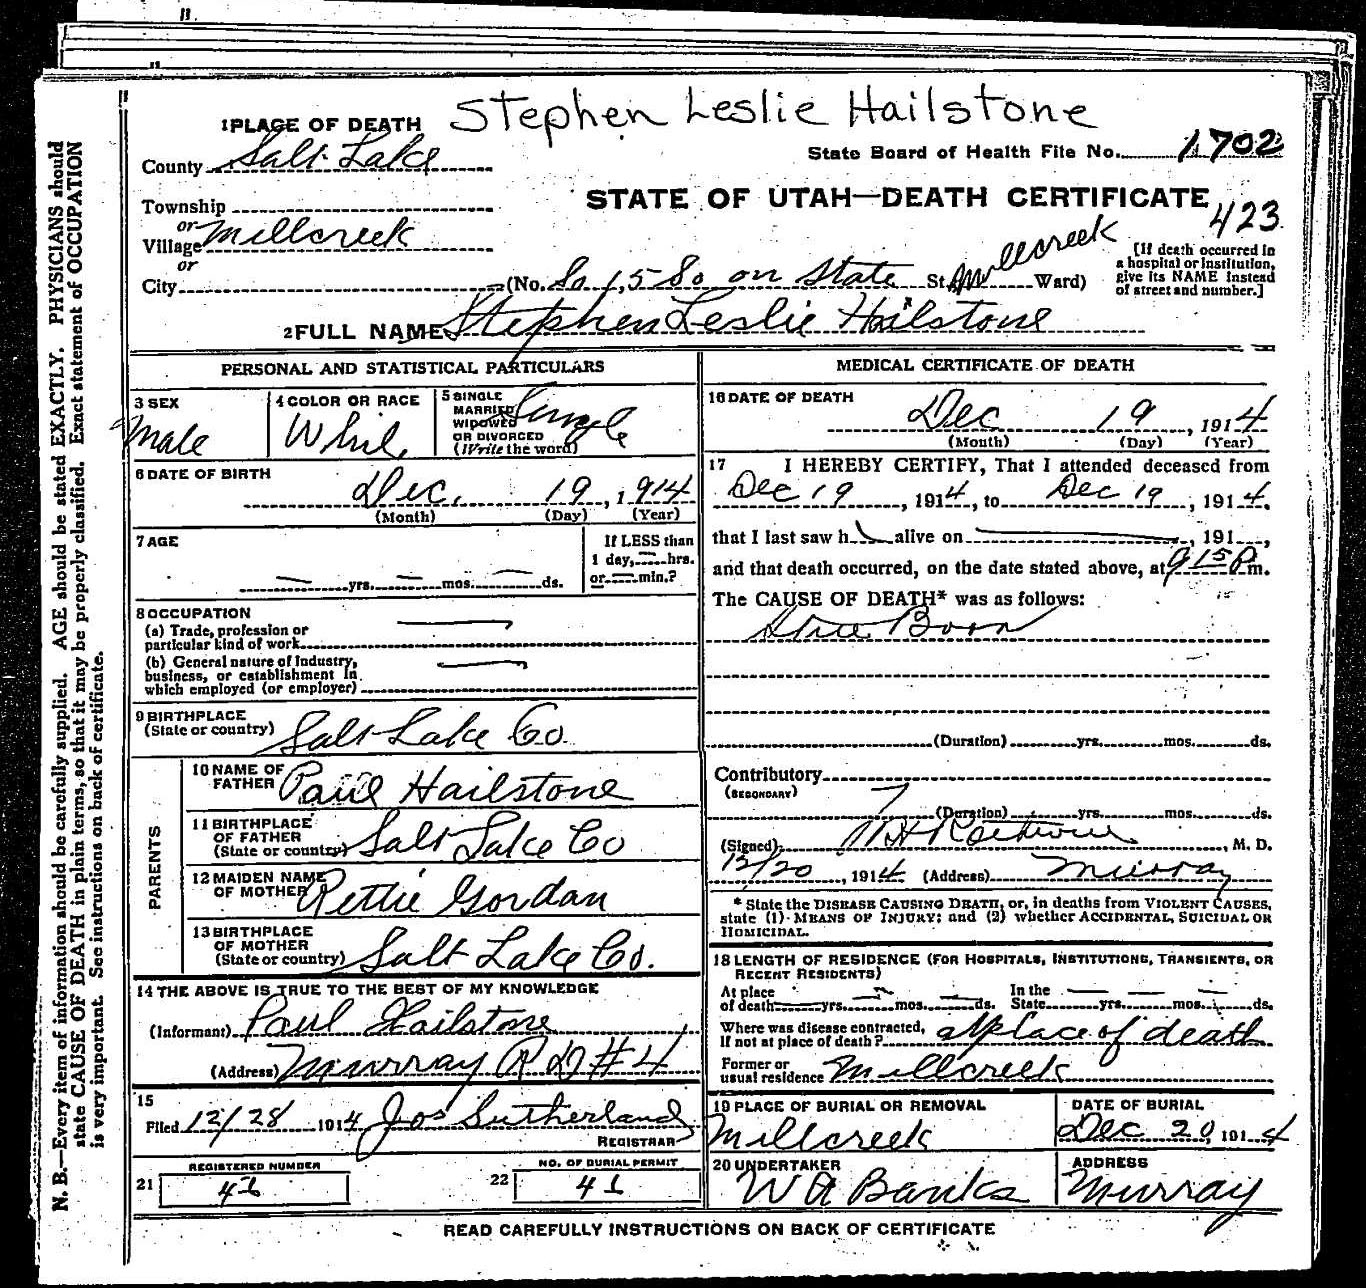 Stephen Leslie Hailstone
1 PLACE OF DEATH
County Salt Lake
State Board of Health File No. 1702
STATE OF UTAH—DEATH CERTIFICATE
423
Township
or
Village Millcreek
or
City (No. So 15 So on State St. Millcreek Ward)
[If death occurred in
a hospital or institution,
give its NAME instead
of street and number.]
2 FULL NAME Stephen Leslie Hailstone
PERSONAL AND STATISTICAL PARTICULARS
3 SEX
Male
4 COLOR OR RACE
White
5 SINGLE
MARRIED
WIDOWED
OR DIVORCED
(Write the word)
Single
6 DATE OF BIRTH
Dec. 19, 1914
(Month) (Day) (Year)
7 AGE
yrs. mos. ds.
If LESS than
1 day, hrs.
or min.?
8 OCCUPATION
(a) Trade, profession or
particular kind of work
(b) General nature of Industry,
business, or establishment in
which employed (or employer)
9 BIRTHPLACE
(State or country) Salt Lake Co.
PARENTS
10 NAME OF
FATHER Paul Hailstone
11 BIRTHPLACE
OF FATHER
(State or country) Salt Lake Co
12 MAIDEN NAME
OF MOTHER Rettie Gordan
13 BIRTHPLACE
OF MOTHER
(State or country) Salt Lake Co.
14 THE ABOVE IS TRUE TO THE BEST OF MY KNOWLEDGE
(Informant) Paul Hailstone
(Address) Murray R D #4
15
Filed 12/28 1914 Jos Sutherland
REGISTRAR
REGISTERED NUMBER
21
NO. OF BURIAL PERMIT
22
MEDICAL CERTIFICATE OF DEATH
16 DATE OF DEATH
Dec 19, 1914
(Month) (Day) (Year)
17 I HEREBY CERTIFY, That I attended deceased from
Dec 19, 1914, to Dec 19, 1914,
that I last saw h alive on , 191 ,
and that death occurred, on the date stated above, at 9 15 P m.
The CAUSE OF DEATH* was as follows:
Still Born
(Duration) yrs. mos. ds.
Contributory
(SECONDARY)
(Duration) yrs. mos. ds.
(Signed) M. D.
12/20, 1914 (Address) Murray
* State the DISEASE CAUSING DEATH, or, in deaths from VIOLENT CAUSES,
state (1) MEANS OF INJURY; and (2) whether ACCIDENTAL, SUICIDAL OR
HOMICIDAL.
18 LENGTH OF RESIDENCE (FOR HOSPITALS, INSTITUTIONS, TRANSIENTS, OR
RECENT RESIDENTS)
At place In the
of death yrs. mos. ds. State yrs. mos. ds.
Where was disease contracted,
If not at place of death? at place of death
Former or
usual residence Millcreek
19 PLACE OF BURIAL OR REMOVAL
Millcreek
DATE OF BURIAL
Dec 20, 1914
20 UNDERTAKER
W A Banks
ADDRESS
Murray
READ CAREFULLY INSTRUCTIONS ON BACK OF CERTIFICATE
N. B.—Every item of information should be carefully supplied. AGE should be stated EXACTLY. PHYSICIANS should
state CAUSE OF DEATH in plain terms, so that it may be properly classified. Exact statement of OCCUPATION
is very important. See instructions on back of certificate.